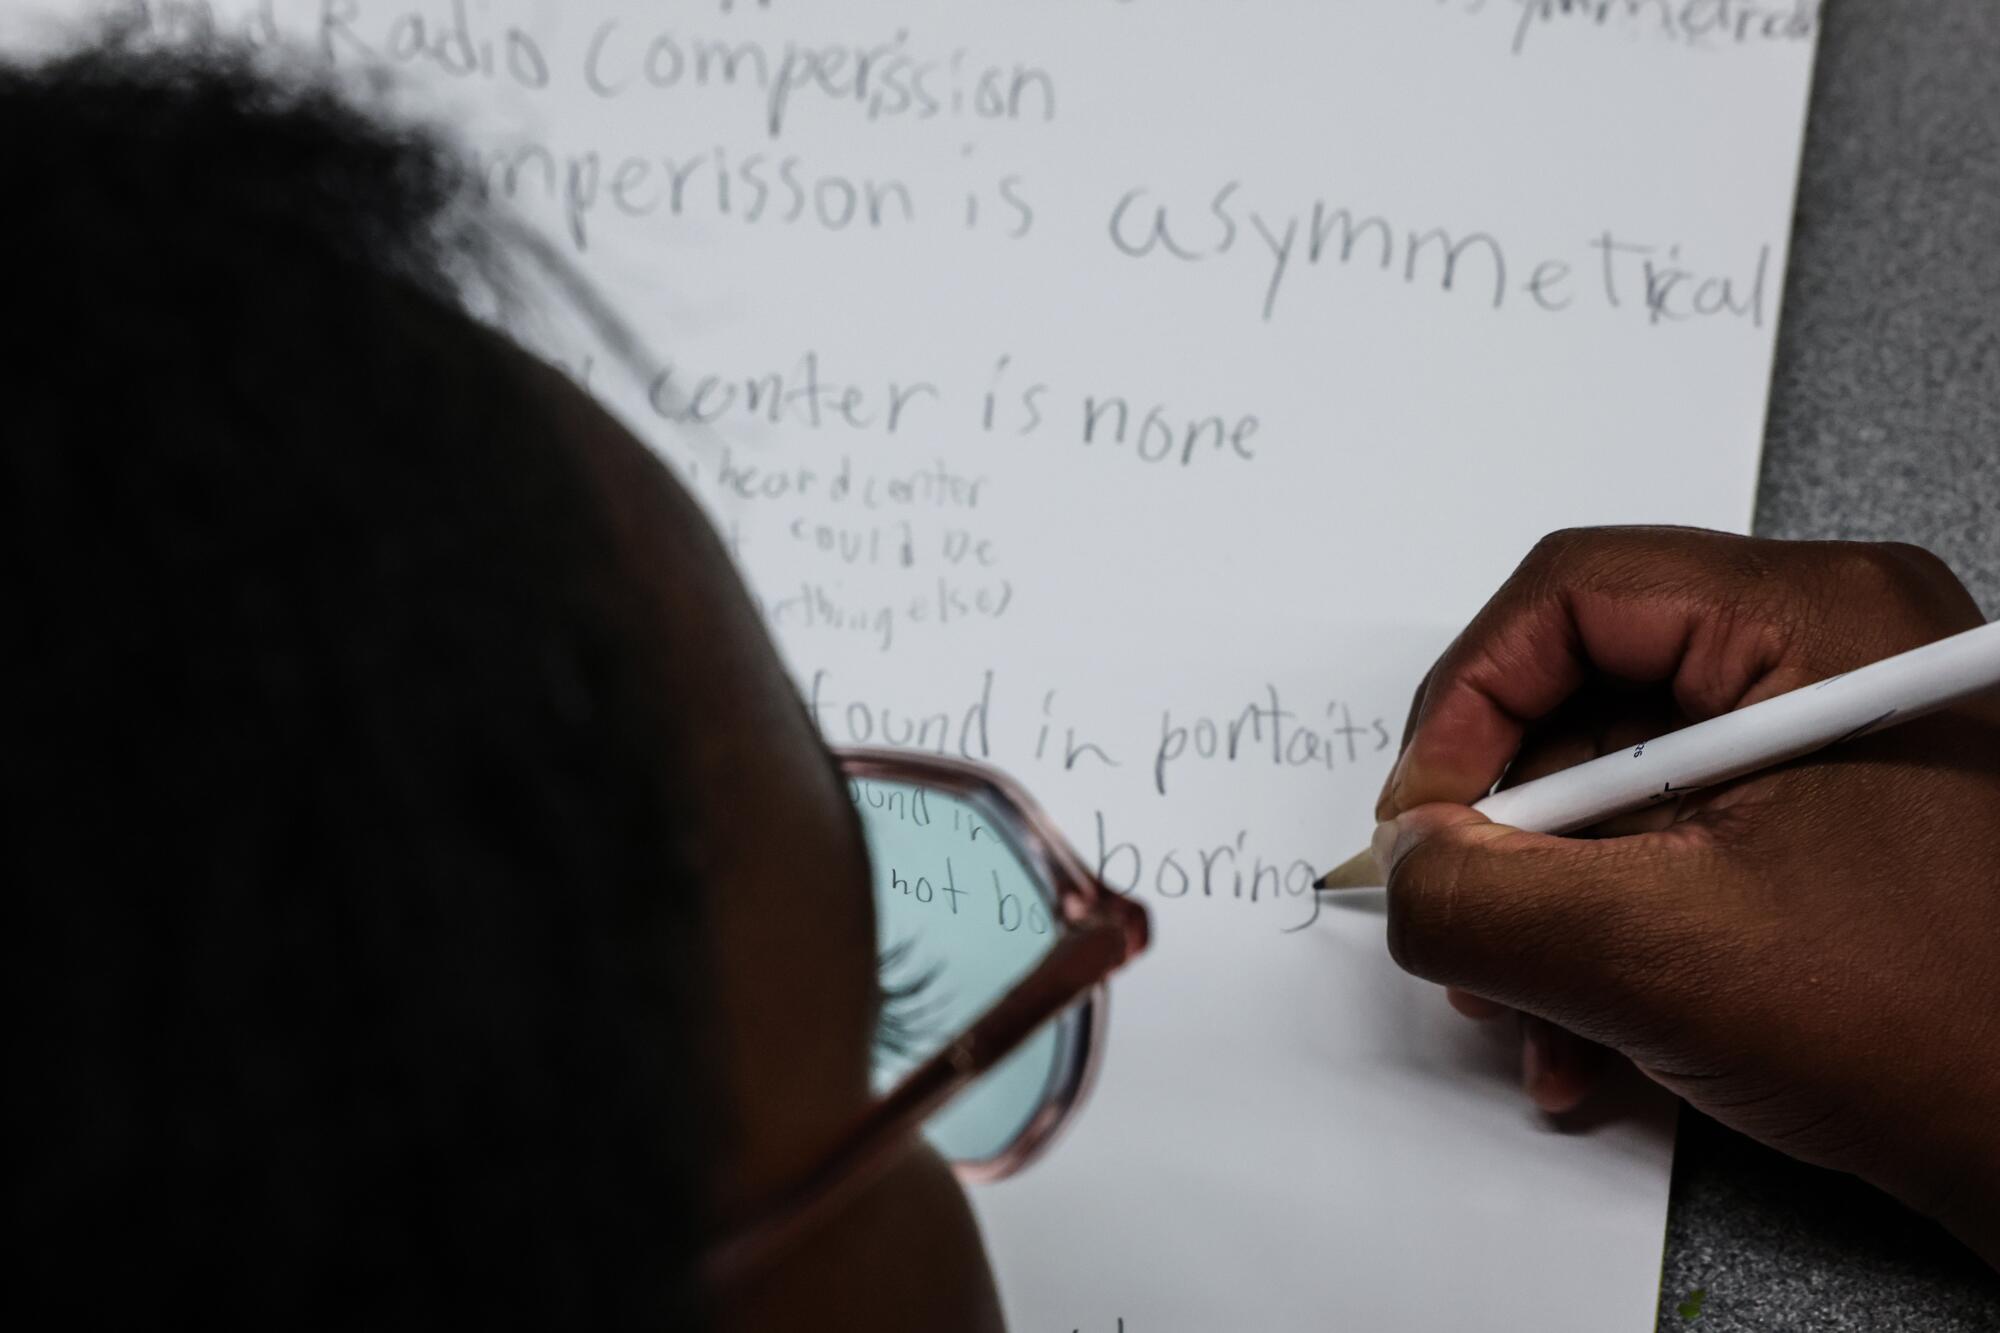 symmetrical
and Radio Comperission
mperisson is asymmetrical
center is none
heard center
could be
thing else)
found in portaits
not boring